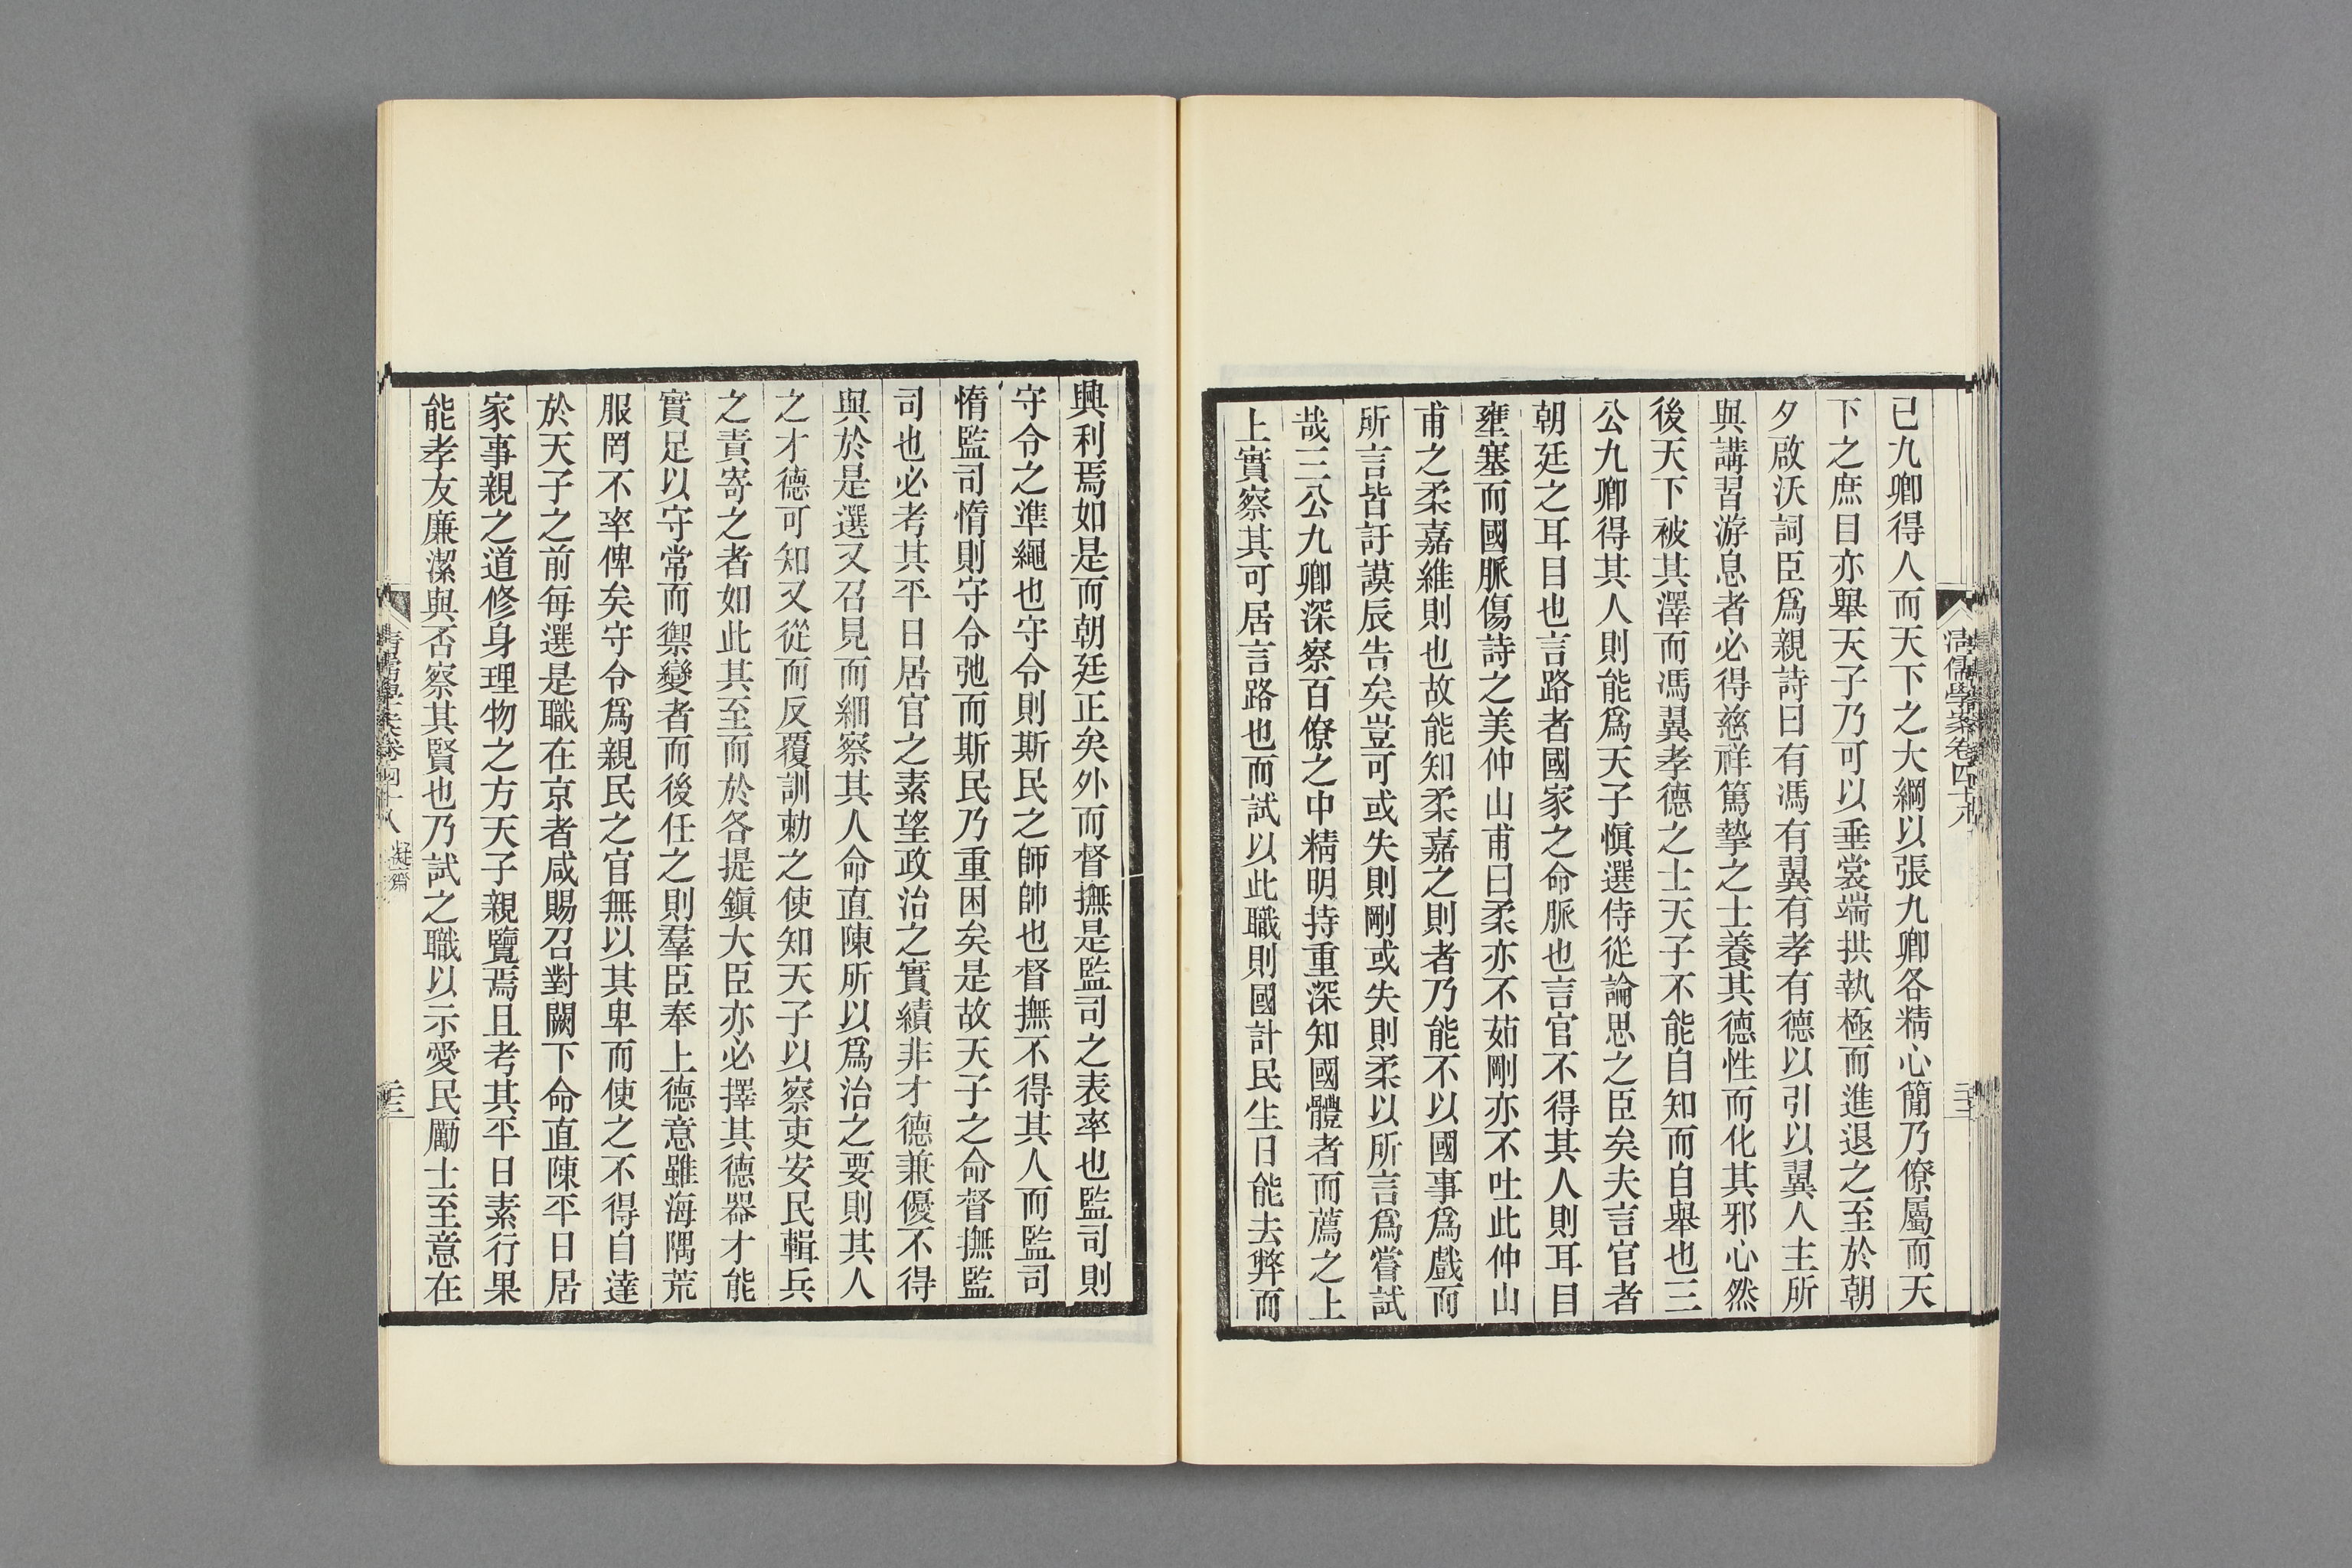 清儒學案卷四十八
二十二
已九卿得人而天下之大綱以張九卿各精心簡乃僚屬而天
下之庶目亦舉天子乃可以垂裳端拱執極而進退之至於朝
夕啟沃詞臣爲親詩曰有馮有翼有孝有德以引以翼人主所
與講習游息者必得慈祥篤摯之士養其德性而化其邪心然
後天下被其澤而馮翼孝德之士天子不能自知而自舉也三
公九卿得其人則能爲天子愼選侍從論思之臣矣夫言官者
朝廷之耳目也言路者國家之命脈也言官不得其人則耳目
壅塞而國脈傷詩之美仲山甫曰柔亦不茹剛亦不吐此仲山
甫之柔嘉維則也故能知柔嘉之則者乃能不以國事爲戲而
所言皆訏謨辰告矣豈可或失則剛或失則柔以所言爲嘗試
哉三公九卿深察百僚之中精明持重深知國體者而薦之上
上實察其可居言路也而試以此職則國計民生日能去弊而
興利焉如是而朝廷正矣外而督撫是監司之表率也監司則
守令之準繩也守令則斯民之師帥也督撫不得其人而監司
惰監司惰則守令弛而斯民乃重困矣是故天子之命督撫監
司也必考其平日居官之素望政治之實績非才德兼優不得
與於是選又召見而細察其人命直陳所以爲治之要則其人
之才德可知又從而反覆訓勅之使知天子以察吏安民輯兵
之責寄之者如此其至而於各提鎭大臣亦必擇其德器才能
實足以守常而禦變者而後任之則羣臣奉上德意雖海隅荒
服罔不率俾矣守令爲親民之官無以其卑而使之不得自達
於天子之前每選是職在京者咸賜召對闕下命直陳平日居
家事親之道修身理物之方天子親覽焉且考其平日素行果
能孝友廉潔與否察其賢也乃試之職以示愛民勵士至意在
清儒學案卷四十八 凝齋